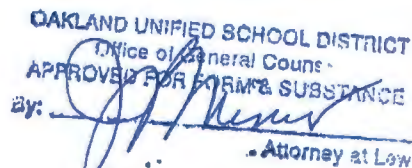 OAKLAND UNIFIED SCHOOL DISTRICT
Office of General Couns
APPROVED FOR FORM & SUBSTANCE
By:
Attorney at Law